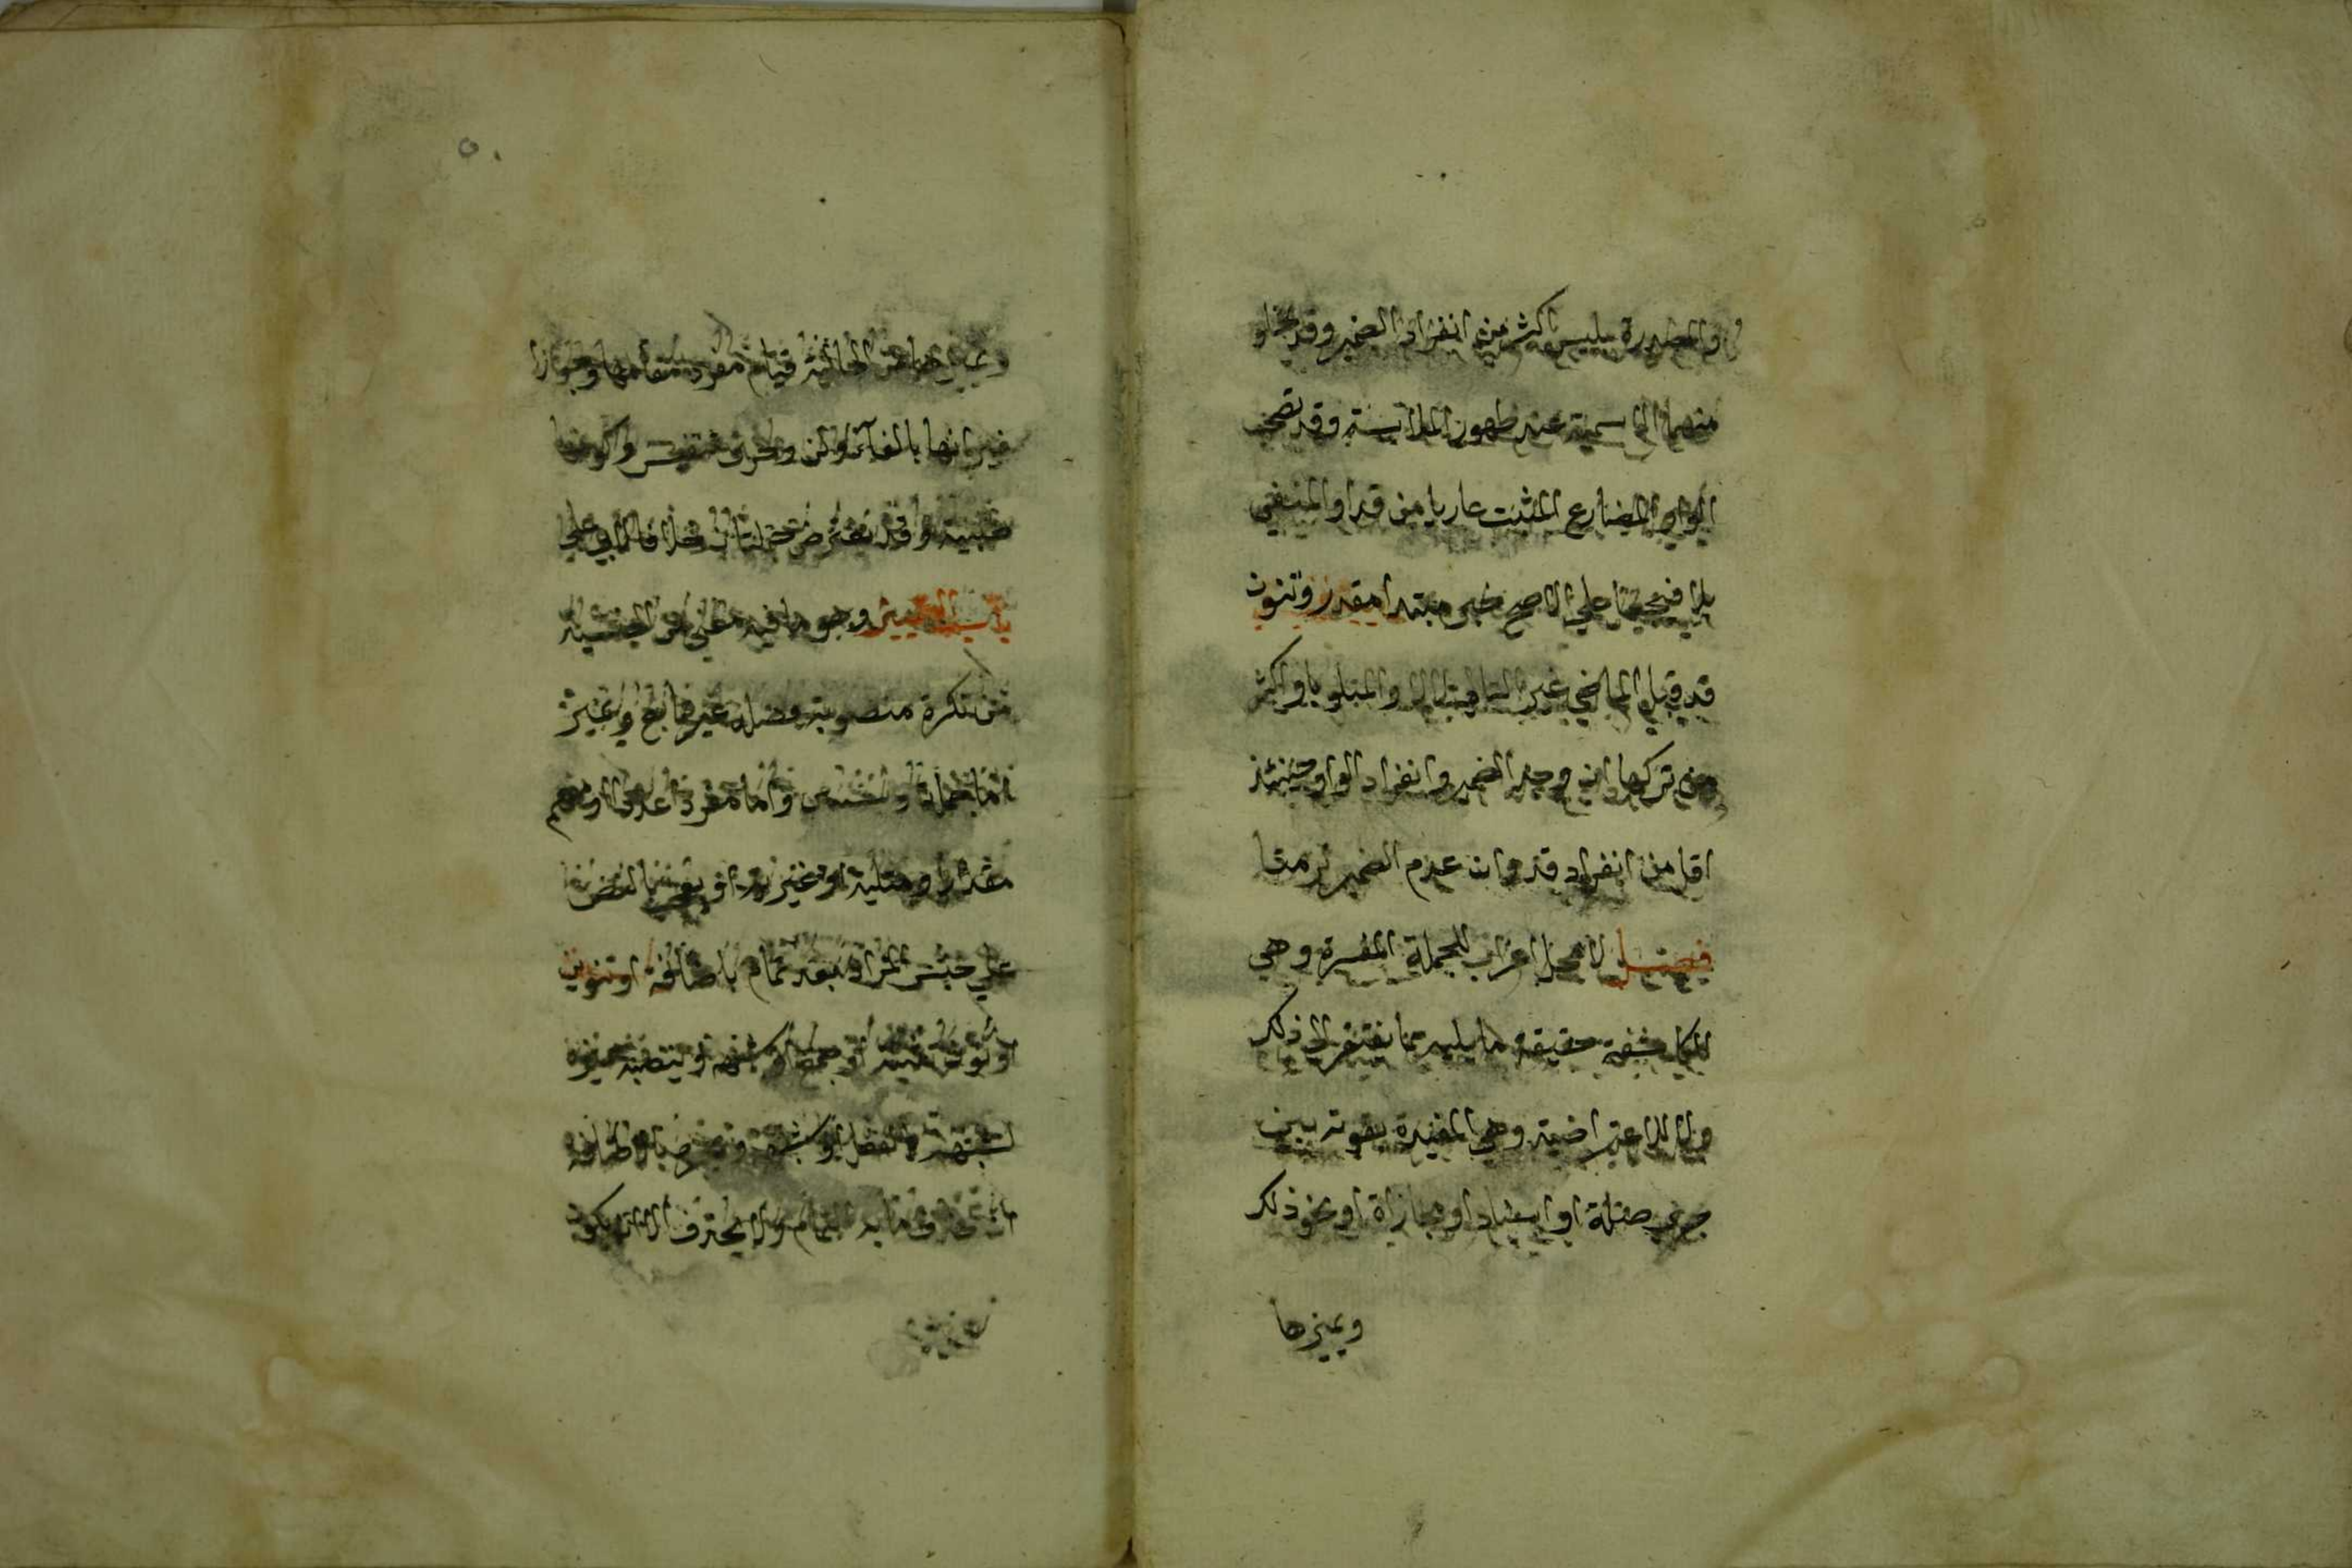 والمصدرة بليس اكثر من انفراد الضمير وقد تخلو
منهما الاسمية عند ظهور الملابسة وقد تصحب
الواو المضارع المثبت عاريا من قد او المنفي
بلا فيجعل علي الاصح خبر مبتدا مقدر وثبوت
قد قبل الماضي غير التالي لالا والمتلو باو اكثر
من تركها ان وجد الضمير وانفراد الواو حينئذ
اقل من انفراد قد وان عدم الضمير لزمتا
فصل لا محل اعراب للجملة المفسرة وهي
الكاشفة حقيقة ما يليه مما يفتقر الي ذلك
ولا للاعتراضية وهي المفيدة تقوية بين
جزئي صلة او اسناد او مجازاة او نحو ذلك
ويميزها
٥٠
ويميزها من الحالية قيام مفرد مقامها وجواز
اقترانها بالفاء ولن وحرف تنفيس وكونها
طلبية وقد تعترض جملتان خلافا لابي علي
باب التمييز وهو ما فيه معني من الجنسية
من نكرة منصوبة فضلة غير تابع ويميز
اما جملة واما مفردا عددا او مفهم
مقدار او مثلية او غيرية او تعجب بالنص
علي جنس المراد بعد تمام باضافة او تنوين
او نون تثنية او جمع او شبهه وينصبه مميزه
لشبهه بالفعل او شبهه ويجره بالاضافة
ان حذف ما به التمام ولا يحذف الا ان يكون